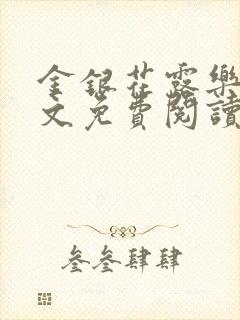 金銀花露樂
文免費閱讀
叁叁肆肆